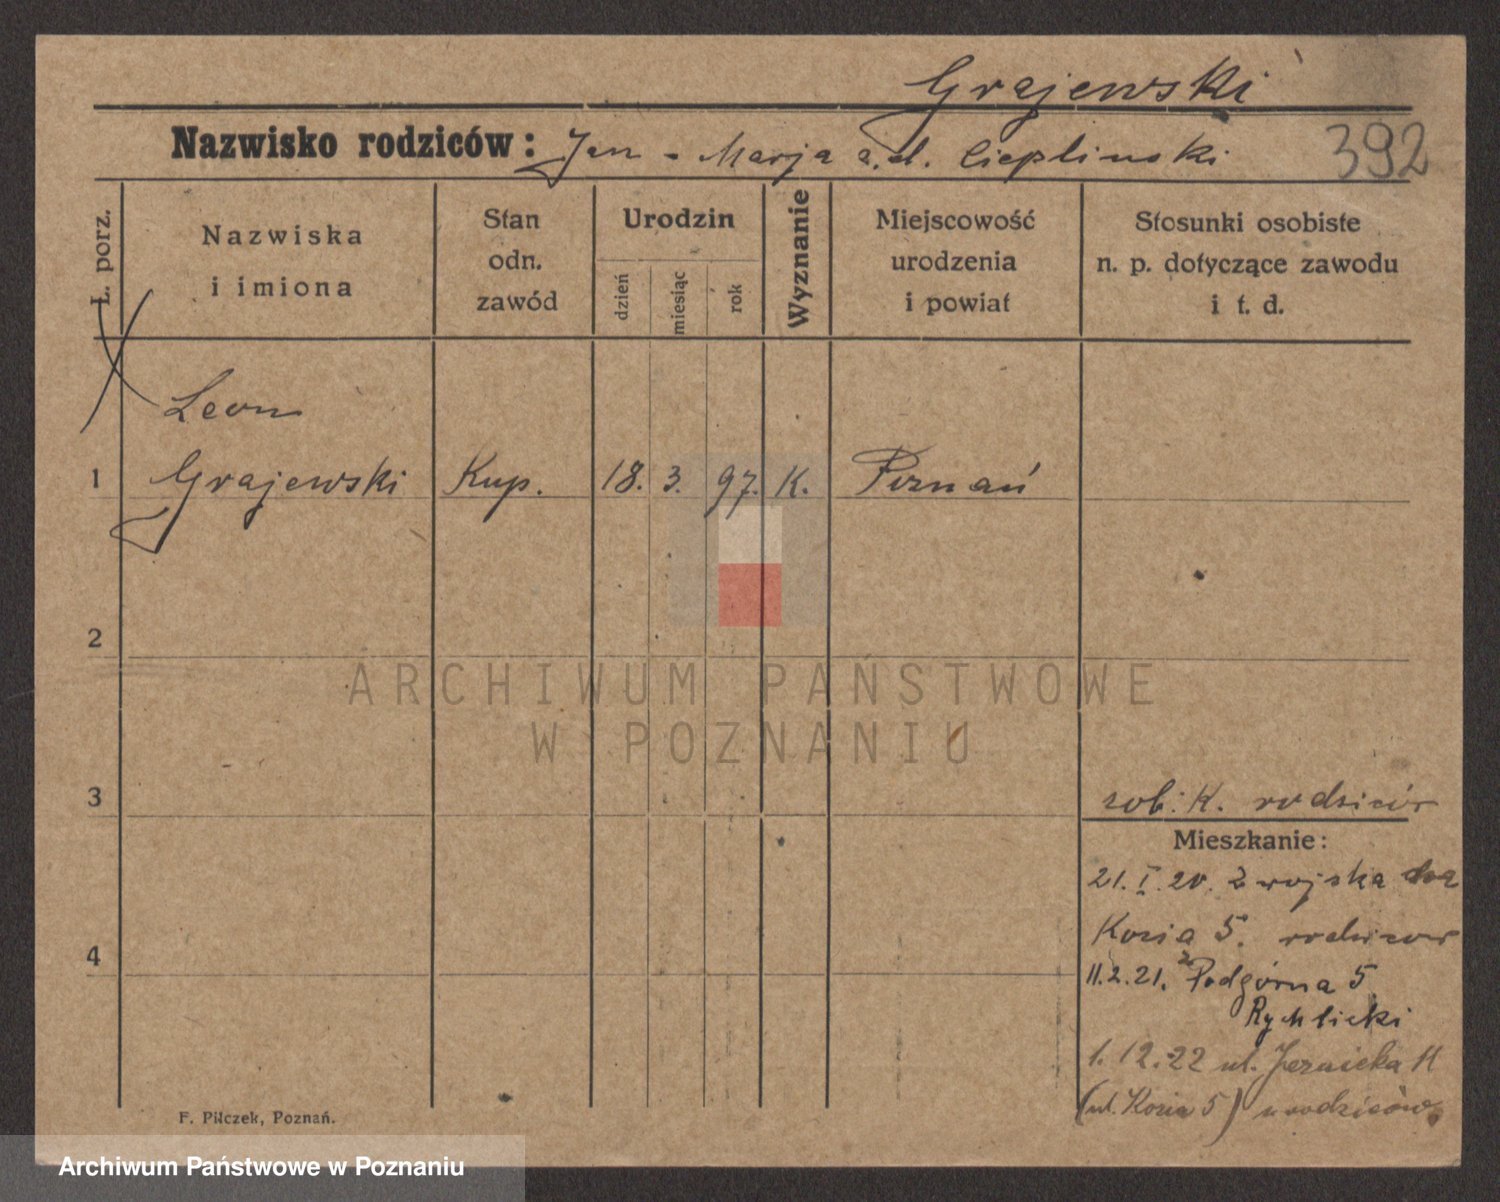 Grajewski
Nazwisko rodziców: Jan - Marja a.d. Cieplinski
392
L. porz.
Nazwiska
i imiona
Stan
odn.
zawód
Urodzin
dzień
miesiąc
rok
Wyznanie
Miejscowość
urodzenia
i powiat
Stosunki osobiste
n. p. dotyczące zawodu
i t. d.
Leon
1 Grajewski Kup. 18. 3. 97. K. Poznań
2
ARCHIWUM PAŃSTWOWE
W POZNANIU
3
zob: K. rodziców
Mieszkanie:
21. I. 20. z wojska
Kozia 5. rodziców
4
11.2.21. Podgórna 5
Rychlicki
1. 12.22 ul. Jezuicka 11
(ul. Kozia 5) u rodziców
F. Pilczek, Poznań.
Archiwum Państwowe w Poznaniu